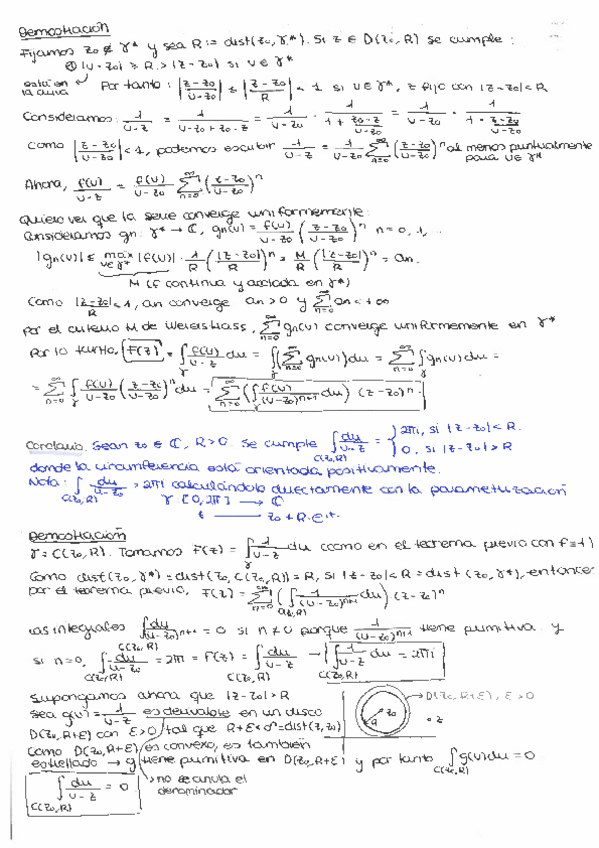 Demostración
Fijamos z₀ ∉ γ* y sea R := dist(z₀, γ*). Si z ∈ D(z₀, R) se cumple:
|u-z₀| ≥ R > |z-z₀| si u ∈ γ*
está en la curva
Por tanto: |(z-z₀)/(u-z₀)| ≤ |(z-z₀)/R| < 1 si u ∈ γ*, z fijo con |z-z₀| < R
Consideramos: 1/(u-z) = 1/(u-z₀+z₀-z) = 1/(u-z₀) · 1/(1 + (z₀-z)/(u-z₀)) = 1/(u-z₀) · 1/(1 - (z-z₀)/(u-z₀))
Como |(z-z₀)/(u-z₀)| < 1, podemos escribir 1/(u-z) = 1/(u-z₀) ∑_{n=0}^{∞} ((z-z₀)/(u-z₀))^n al menos puntualmente para u ∈ γ*
Ahora, f(u)/(u-z) = f(u)/(u-z₀) ∑_{n=0}^{∞} ((z-z₀)/(u-z₀))^n
Quiero ver que la serie converge uniformemente:
Consideramos gn: γ* → ℂ, gn(u) = f(u)/(u-z₀) ((z-z₀)/(u-z₀))^n n = 0, 1, ...
|gn(u)| ≤ max_{u∈γ*} |f(u)| · 1/R (|z-z₀|/R)^n = M/R (|z-z₀|/R)^n = an.
M (f continua y acotada en γ*)
Como |z-z₀|/R < 1, an converge an > 0 y ∑_{n=0}^{∞} an < +∞
por el criterio M de Weierstrass, ∑_{n=0}^{∞} gn(u) converge uniformemente en γ*
Por lo tanto, F(z) = ∫_γ f(u)/(u-z) du = ∫_γ (∑_{n=0}^{∞} gn(u)) du = ∑_{n=0}^{∞} ∫_γ gn(u) du =
= ∑_{n=0}^{∞} ∫_γ f(u)/(u-z₀) ((z-z₀)/(u-z₀))^n du = ∑_{n=0}^{∞} (∫_γ f(u)/(u-z₀)^{n+1} du) (z-z₀)^n
Corolario. Sean z₀ ∈ ℂ, R > 0. Se cumple ∫_{C(z₀,R)} du/(u-z) = { 2πi, si |z-z₀| < R. 0, si |z-z₀| > R
donde la circunferencia está orientada positivamente.
Nota: ∫_{C(z₀,R)} du/(u-z₀) = 2πi calculándolo directamente con la parametrización
γ: [0, 2π] → ℂ
t → z₀ + R·e^{it}
Demostración
γ = C(z₀, R). Tomamos F(z) = ∫_γ 1/(u-z) du (como en el teorema previo con f ≡ 1)
Como dist(z₀, γ*) = dist(z₀, C(z₀, R)) = R, si |z-z₀| < R = dist(z₀, γ*), entonces
por el teorema previo, F(z) = ∑_{n=0}^{∞} (∫_{C(z₀,R)} 1/(u-z₀)^{n+1} du) (z-z₀)^n
Las integrales ∫_{C(z₀,R)} du/(u-z₀)^{n+1} = 0 si n ≠ 0 porque 1/(u-z₀)^{n+1} tiene primitiva y
si n = 0, ∫_{C(z₀,R)} du/(u-z₀) = 2πi = F(z) = ∫_{C(z₀,R)} du/(u-z) → ∫_{C(z₀,R)} 1/(u-z) du = 2πi
Supongamos ahora que |z-z₀| > R
sea g(u) = 1/(u-z) es derivable en un disco
D(z₀, R+ε) con ε > 0 / tal que R+ε < d = dist(z, z₀)
→ D(z₀, R+ε), ε > 0
R
z₀
z
Como D(z₀, R+ε) es convexo, es también
estrellado → g tiene primitiva en D(z₀, R+ε) y por tanto ∫_{C(z₀,R)} g(u) du = 0
∫_{C(z₀,R)} du/(u-z) = 0
no se anula el denominador